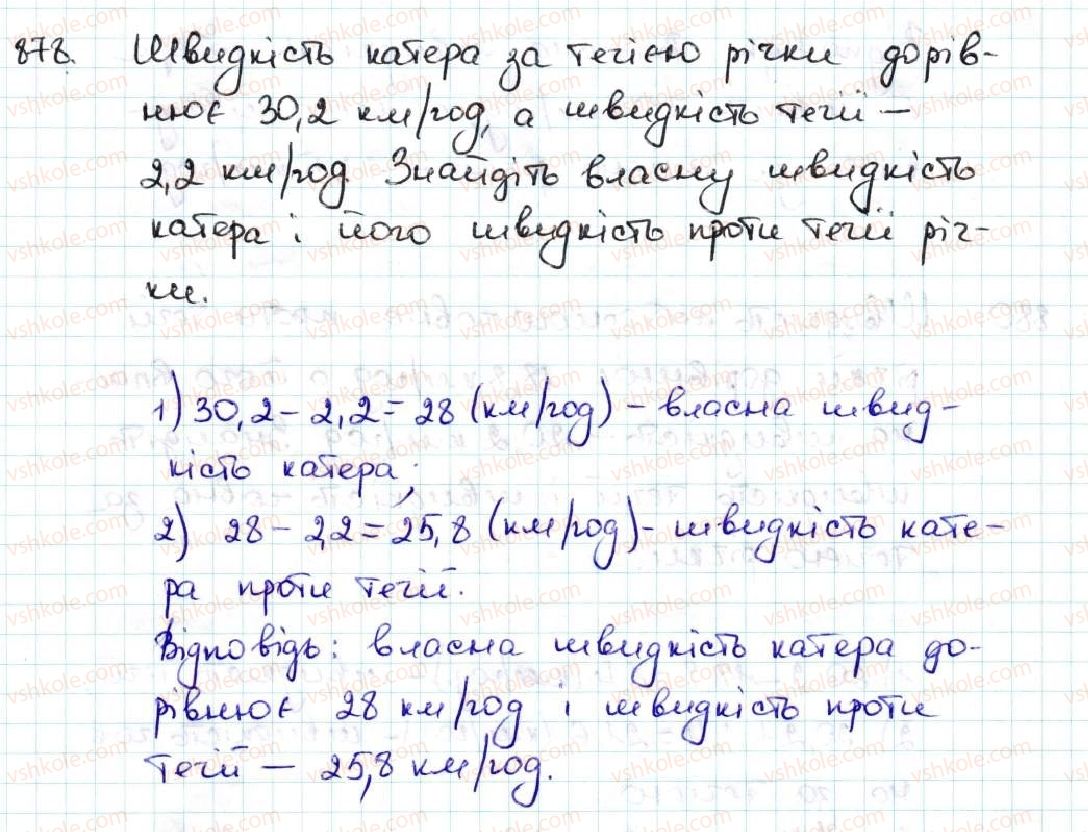 878. Швидкість катера за течією річки дорів-
нює 30,2 км/год, а швидкість течії —
2,2 км/год. Знайдіть власну швидкість
катера і його швидкість проти течії річ-
ки.
1) 30,2 - 2,2 = 28 (км/год) - власна швид-
кість катера;
2) 28 - 2,2 = 25,8 (км/год) - швидкість кате-
ра проти течії.
Відповідь: власна швидкість катера до-
рівнює 28 км/год і швидкість проти
течії — 25,8 км/год.